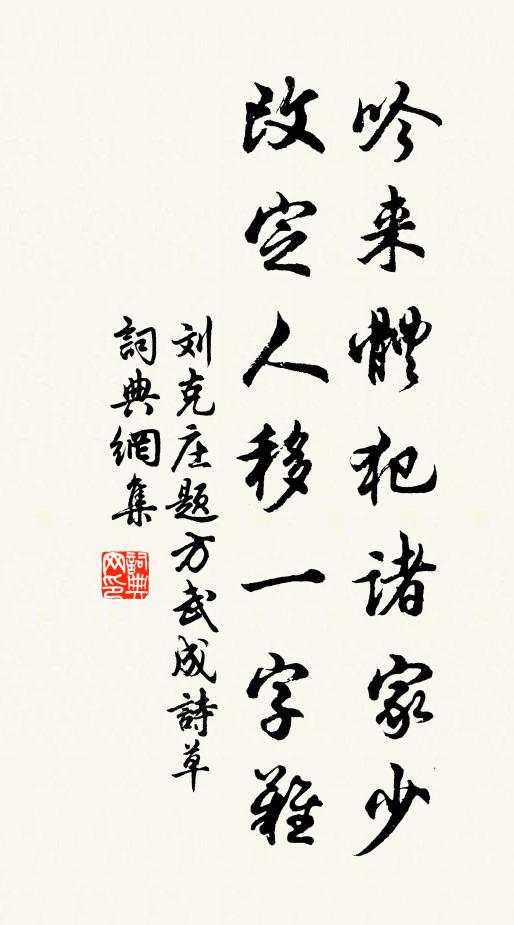 吟来體犯諸家少
改定人移一字難
刘克庄题方武成詩草
詞典網集
詞典网印